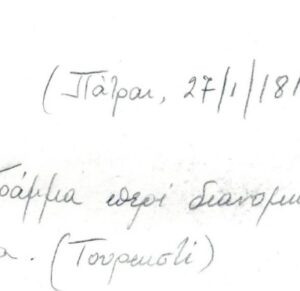 (Πάτραι, 27/1/181
ράμμα περί διανομ
α. (Τουρκιστί)